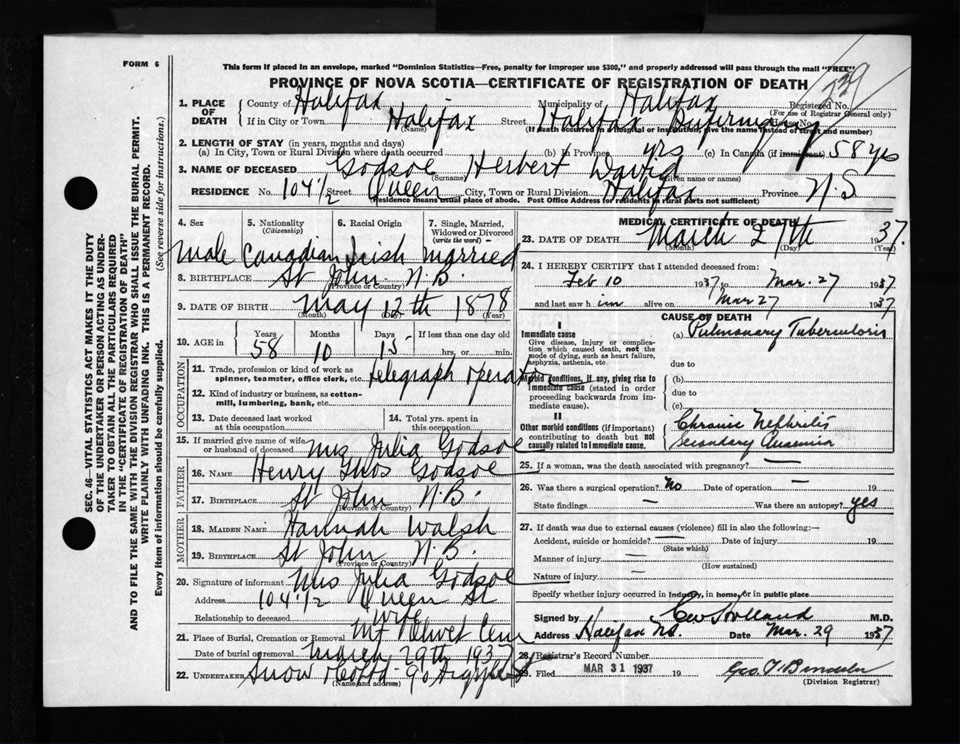 FORM 6
This form if placed in an envelope, marked "Dominion Statistics—Free, penalty for improper use $300," and properly addressed will pass through the mail "FREE"
PROVINCE OF NOVA SCOTIA—CERTIFICATE OF REGISTRATION OF DEATH
1. PLACE OF DEATH County of Halifax Municipality of Halifax Registered No.
(For use of Registrar General only)
If in City or Town Halifax Street Halifax House No.
(Name) (If death occurred in hospital or institution, give the name instead of street and number)
2. LENGTH OF STAY (in years, months and days)
(a) In City, Town or Rural Division where death occurred (b) In Province yrs (c) In Canada (if immigrant) 58 yrs
3. NAME OF DECEASED Godsoe Herbert David
(Surname) (Given name or names)
RESIDENCE No. 104 1/2 Street Queen City, Town or Rural Division Halifax Province N.S
(Residence means usual place of abode. Post Office Address for residents in rural parts not sufficient)
4. Sex 5. Nationality (Citizenship) 6. Racial Origin 7. Single, Married, Widowed or Divorced (write the word)
Male Canadian Irish Married
8. BIRTHPLACE St John N.B.
(Province or Country)
9. DATE OF BIRTH May 12th 1878
(Month)
10. AGE in Years Months Days If less than one day old
58 10 15 hrs. or min.
OCCUPATION
11. Trade, profession or kind of work as spinner, teamster, office clerk, etc. telegraph operator
12. Kind of industry or business, as cotton-mill, lumbering, bank, etc.
13. Date deceased last worked at this occupation 14. Total yrs. spent in this occupation
15. If married give name of wife or husband of deceased Mrs Julia Godsoe
FATHER
16. NAME Henry Godsoe
17. BIRTHPLACE St John N.B.
(Province or Country)
MOTHER
18. MAIDEN NAME Hannah Walsh
19. BIRTHPLACE St John N.B.
(Province or Country)
20. Signature of informant Mrs Julia Godsoe
Address 104 1/2 Queen St
Relationship to deceased wife
21. Place of Burial, Cremation or Removal Mt Olivet Cem
Date of burial or removal March 29th 1937
22. UNDERTAKER Snow
(Name and address)
MEDICAL CERTIFICATE OF DEATH
23. DATE OF DEATH March 27th 1937.
(Month) (Day) (Year)
24. I HEREBY CERTIFY that I attended deceased from:
Feb 10 1937 to Mar. 27 1937
and last saw him alive on Mar 27 1937
CAUSE OF DEATH
I
Immediate cause (a) Pulmonary Tuberculosis
Give disease, injury or complication which caused death, not the mode of dying, such as heart failure, asphyxia, asthenia, etc.
due to
Morbid conditions, if any, giving rise to immediate cause (stated in order proceeding backwards from immediate cause).
(b)
due to
(c)
II
Other morbid conditions (if important) contributing to death but not causally related to immediate cause.
Chronic Nephritis
Secondary Anaemia
25. If a woman, was the death associated with pregnancy? —
26. Was there a surgical operation? No Date of operation — 19
State findings — Was there an autopsy? yes
27. If death was due to external causes (violence) fill in also the following:—
Accident, suicide or homicide? — Date of injury 19
(State which)
Manner of injury —
(How sustained)
Nature of injury —
Specify whether injury occurred in industry, in home, or in public place
Signed by M.D.
Address Halifax NS. Date Mar. 29 1937
28. Registrar's Record Number
29. Filed MAR 31 1937 19
(Division Registrar)
SEC. 46—VITAL STATISTICS ACT MAKES IT THE DUTY
OF THE UNDERTAKER OR PERSON ACTING AS UNDER-
TAKER TO OBTAIN ALL THE PARTICULARS REQUIRED
IN THE "CERTIFICATE OF REGISTRATION OF DEATH"
AND TO FILE THE SAME WITH THE DIVISION REGISTRAR WHO SHALL ISSUE THE BURIAL PERMIT.
WRITE PLAINLY WITH UNFADING INK. THIS IS A PERMANENT RECORD.
Every item of information should be carefully supplied. (See reverse side for instructions.)